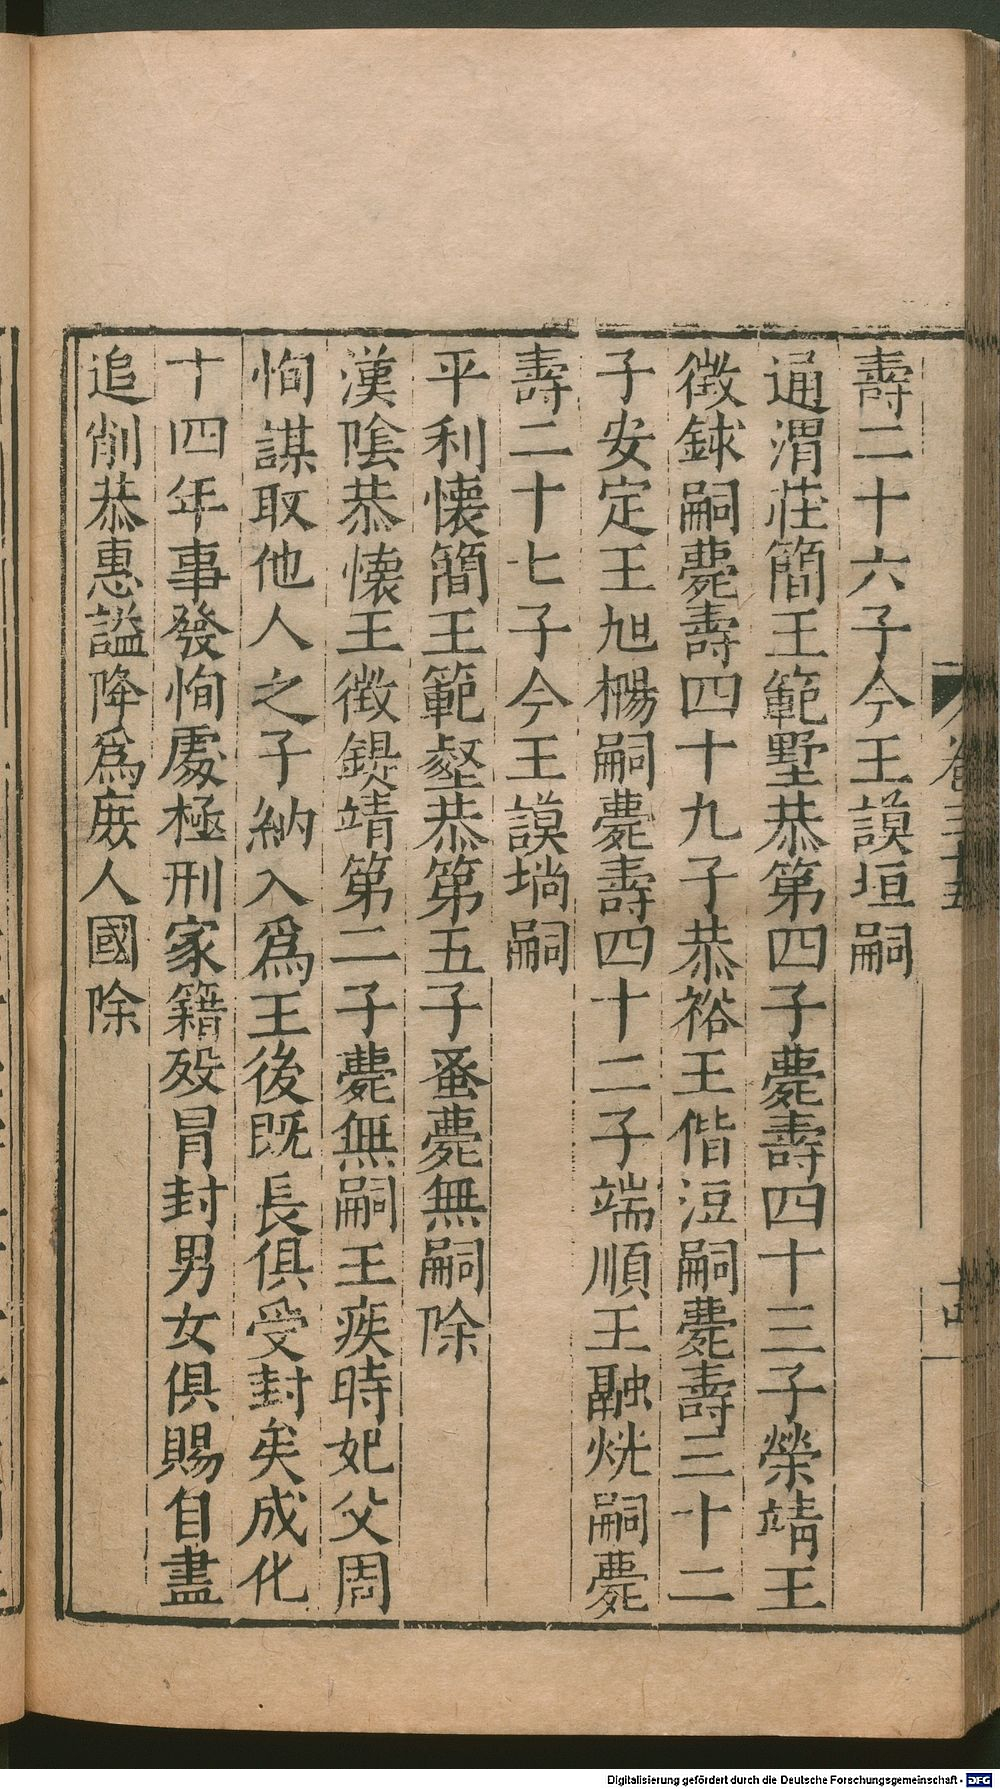 壽二十六子今王謨垣嗣
通渭莊簡王範墅恭第四子薨壽四十三子榮靖王
徵銶嗣薨壽四十九子恭裕王偕浢嗣薨壽三十二
子安定王旭楊嗣薨壽四十二子端順王融烑嗣薨
壽二十七子今王謨㙊嗣
平利懷簡王範壑恭第五子蚤薨無嗣除
漢陰恭懷王徵鍉靖第二子薨無嗣王疾時妃父周
恂謀取他人之子納入爲王後既長俱受封矣成化
十四年事發恂處極刑家籍歿冐封男女俱賜自盡
追削恭惠謚降爲庻人國除
卷三十五
十四
Digitalisierung gefördert durch die Deutsche Forschungsgemeinschaft - DFG